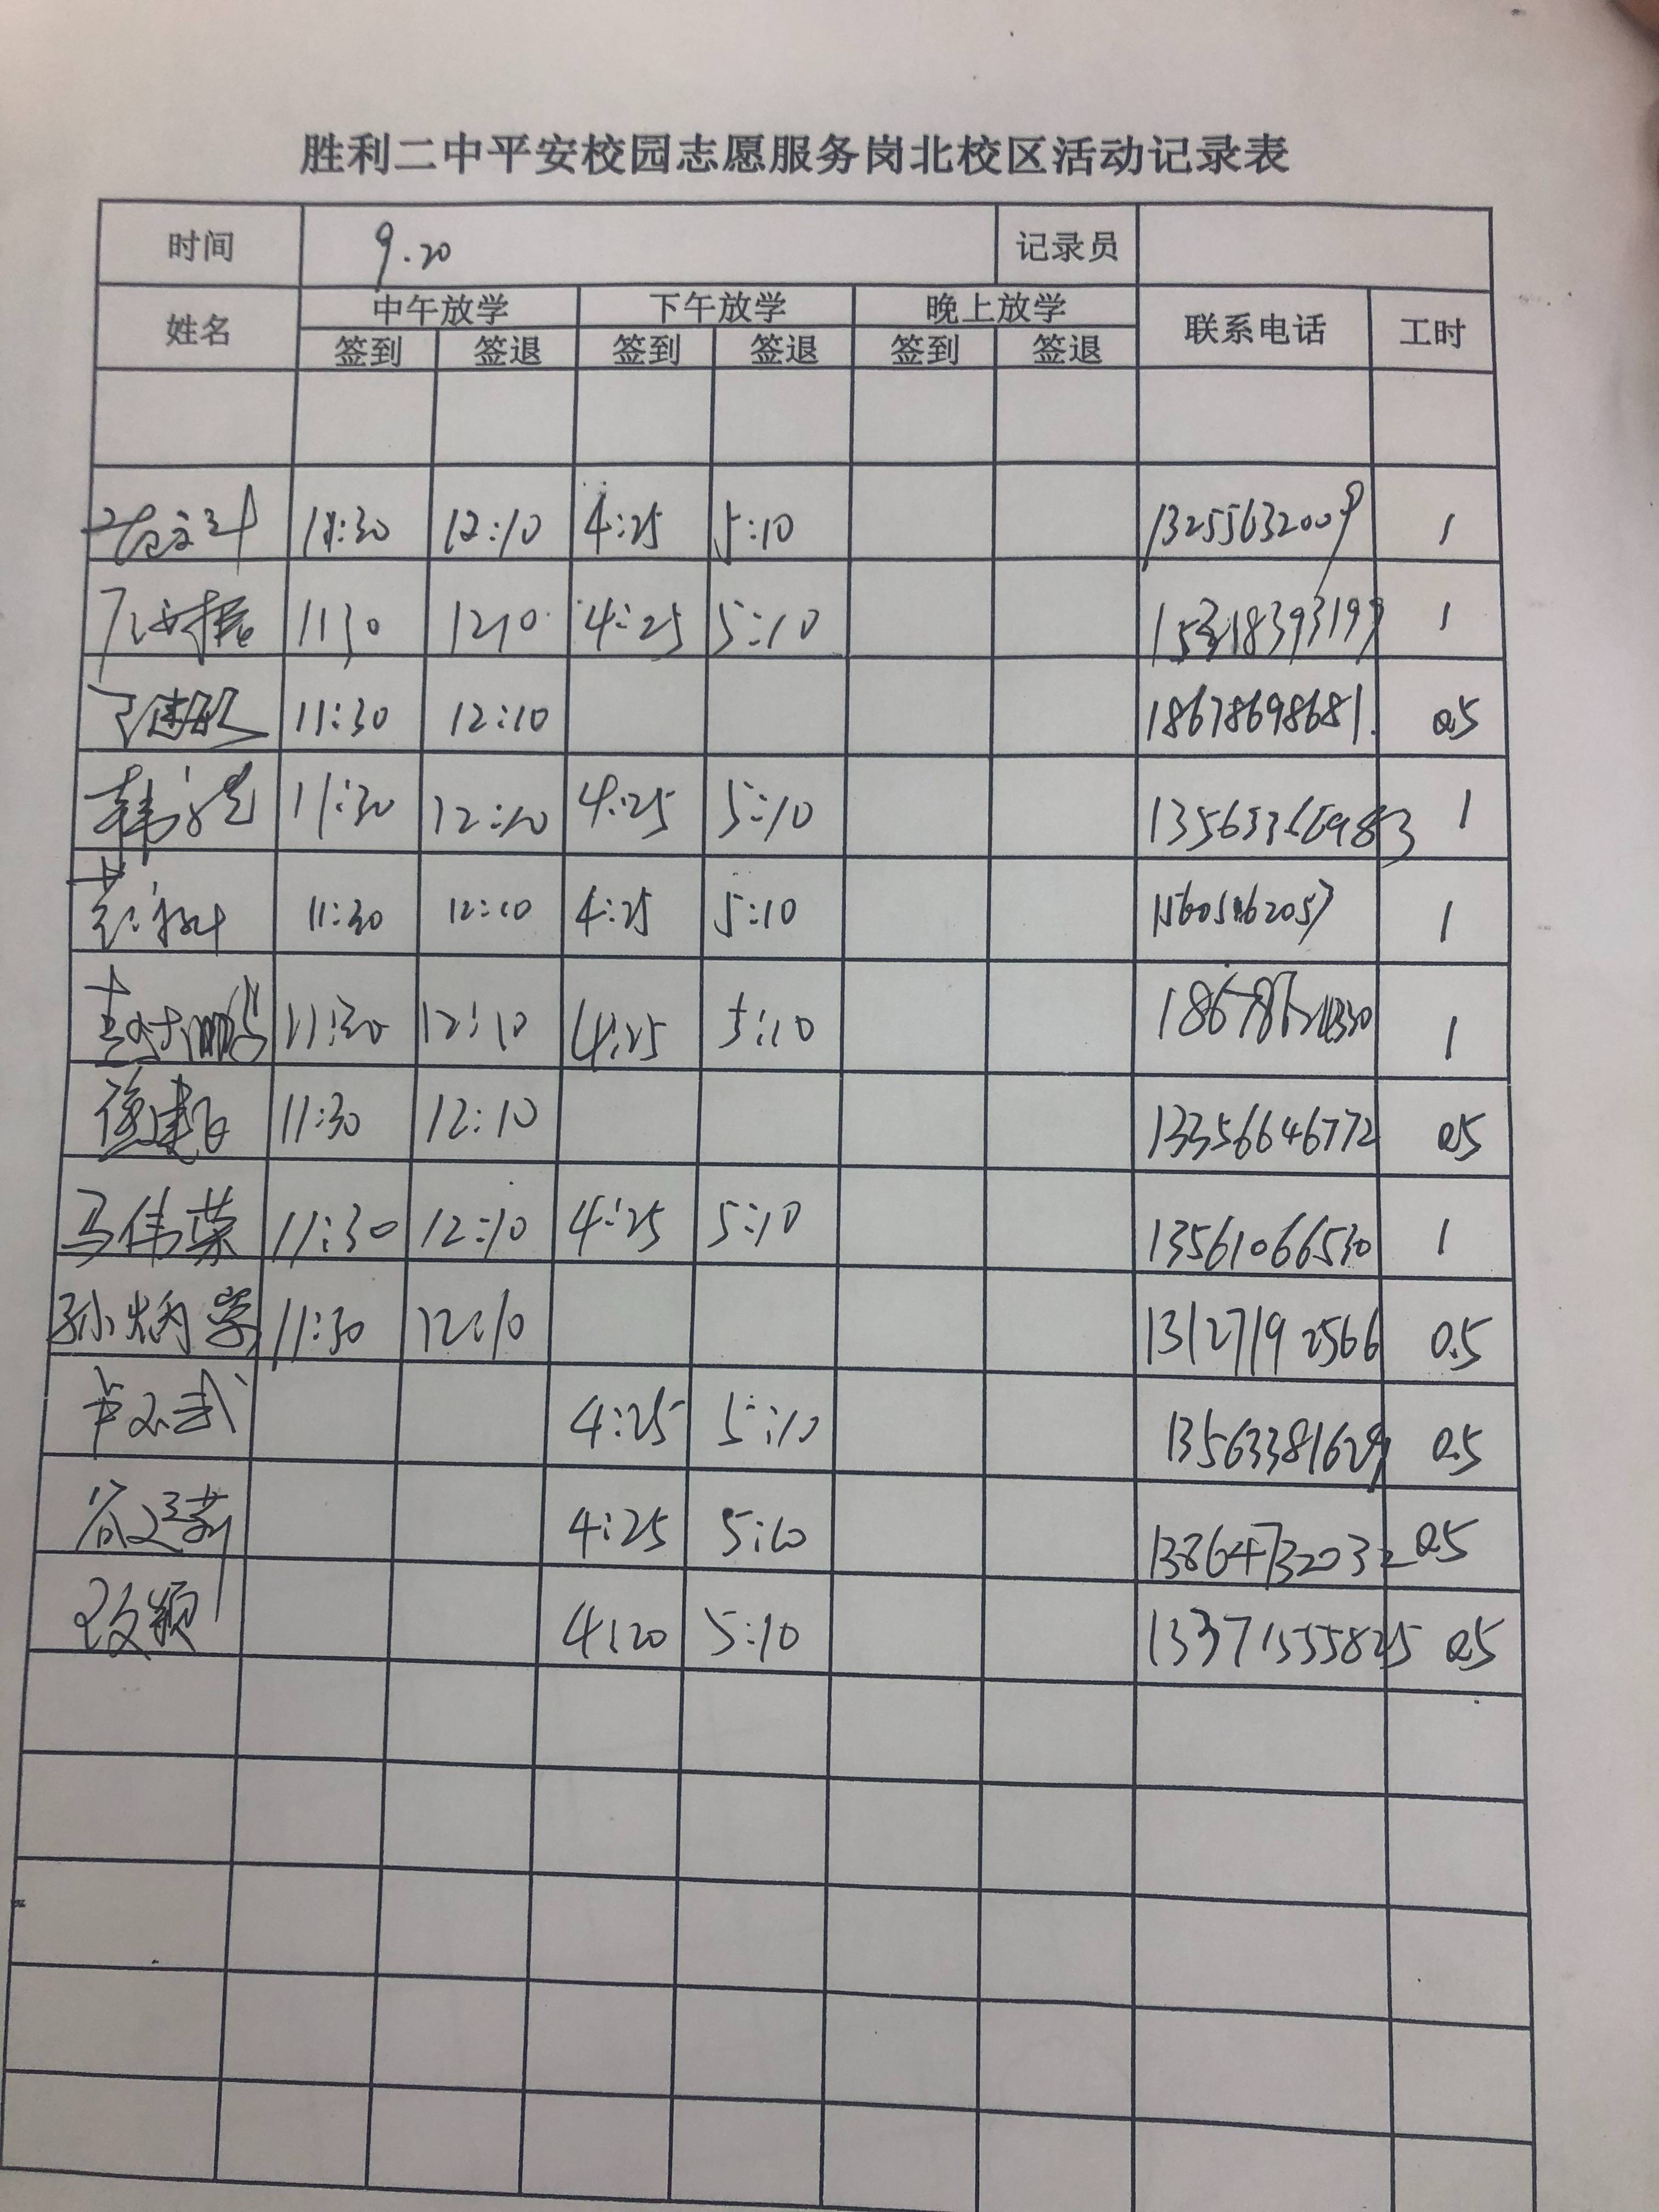 胜利二中平安校园志愿服务岗北校区活动记录表
时间 9.20 记录员
姓名 中午放学 下午放学 晚上放学 联系电话 工时
签到 签退 签到 签退 签到 签退
11:30 12:10 4:25 5:10 13255632009 1
1130 1210 4:25 5:10 1
11:30 12:10 18678698681 0.5
韩 11:30 12:10 4:25 5:10 1
11:30 12:10 4:25 5:10 15605462057 1
11:30 12:10 4:25 5:10 1
11:30 12:10 13356646772 0.5
马伟荣 11:30 12:10 4:25 5:10 13561066530 1
孙炳学 11:30 12:10 13127192566 0.5
4:25 5:10 13563381629 0.5
谷建莉 4:25 5:10 13864732032 0.5
4:20 5:10 13371555825 0.5